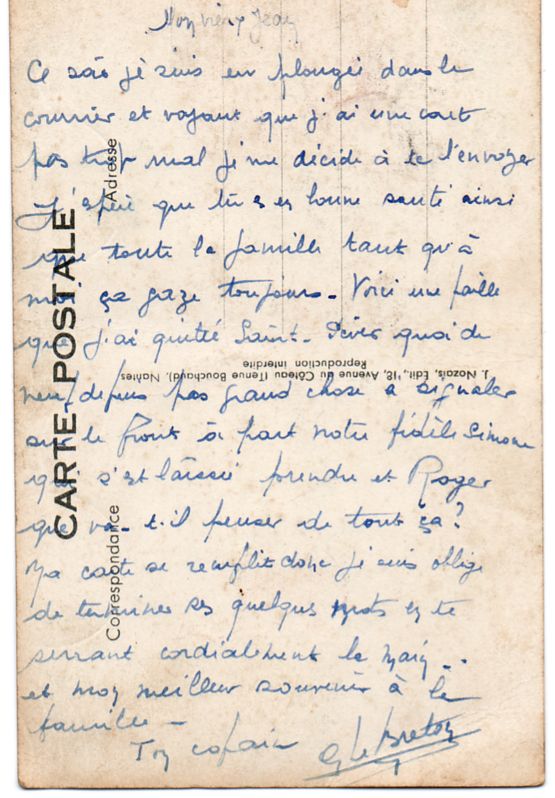 Mon vieux Jean
Ce soir je suis en plongée dans le
courrier et voyant que j'ai une carte
pas trop mal je me décide à te l'envoyer
J'espère que tu es en bonne santé ainsi
que toute la famille tant qu'à
moi ça gaze toujours - Voici une paille
que j'ai quitté Saint-Sever quoi de
neuf depuis pas grand chose à signaler
sur le front à part notre fidèle Simone
qui s'est laissé prendre et Roger
que va-t-il penser de tout ça?
Ma carte se remplit donc je suis obligé
de terminer ses quelques mots en te
serrant cordialement la main..
et mon meilleur souvenir à la
famille -
Ton copain G Le Breton
CARTE POSTALE
Correspondance
Adresse
J. Nozais, Edit., 18, Avenue du Côteau (Tenue Bouchaud), Nantes
Reproduction interdite